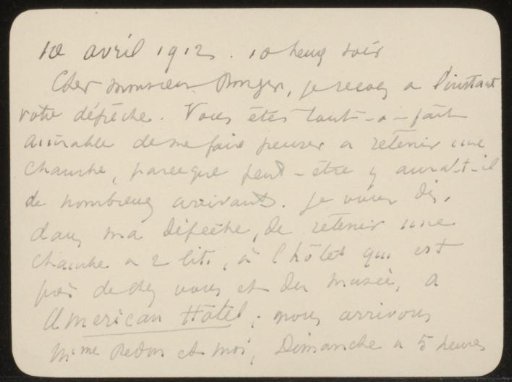 10 avril 1912. 10 heures soir
Cher monsieur Bonger, je reçois a l'instant
votre dépêche. Vous êtes tout-a-fait
aimable de me faire penser a retenir une
chambre, parceque peut-être y aura-t-il
de nombreux arrivants. je vous dis,
dans ma dépêche, de retenir une
chambre a 2 lits, à l'hôtel qui est
près de chez vous et du musée, a
American Hôtel; nous arrivons
Mme Redon et moi, Dimanche a 5 heures